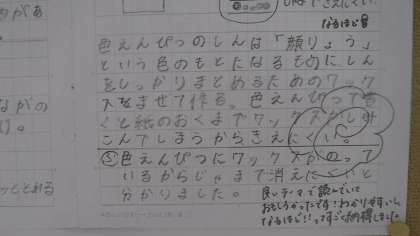 なるほど
色えんぴつのしんは「顔りょう」
という色のもとになるものに、しん
をしっかりまとめるためのワック
スをまぜて作る。色えんぴつで書
くと紙のおくまでワックスがしみ
こんでしまうからきえにくい。
⑤色えんぴつにワックスがのって
いるからじゃまで消えにくいと
分かりました。
良いテーマで読んでいて
おもしろかったです!わかりやすいし、
なるほど!!ってすごく納得しました